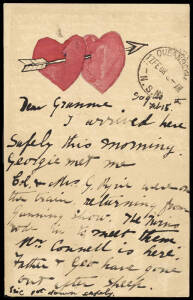 QUEANBEYAN
N.S.W
Dear Grannie
I arrived here
safely this morning.
Georgie met me
Col. & Mrs G. Ryrie were on
the train returning from
Show. The
to meet them
Mrs Connell is here.
Father & Geo have gone
out after sheep.
Eric got down safely.